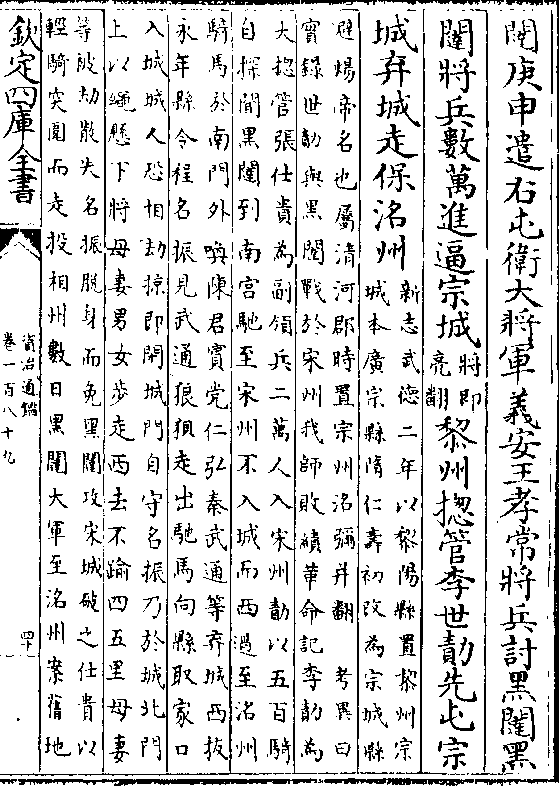 闥庚申遣右屯衛大將軍義安王孝常將兵討黑闥黑
闥將兵數萬進逼宗城將即亮翻黎州揔管李世勣先屯宗
城弃城走保洺州新志武徳二年以黎陽縣置黎州宗
城本廣宗縣隋仁壽初改為宗城縣
避煬帝名也屬清河郡時置宗州洺彌并翻 考異曰
實錄世勣與黑闥戰於宋州我師敗績革命記李勣為
大揔管張仕貴為副領兵二萬人入宋州勣以五百騎
自探聞黑闥到南宫馳至宋州不入城而西過至洺州
騎馬於南門外喚陳君賓党仁弘秦武通等弃城西拔
永年縣令程名振見武通狼狽走出馳馬向縣取家口
入城城人恐相刼掠即閉城門自守名振乃於城北門
上以繩懸下將母妻男女步走西去不踰四五里母妻
等被刼散失名振脱身而免黑闥攻宋城破之仕貴以
輕騎突圍而走投相州數日黑闥大軍至洺州案舊地
欽定四庫全書
資治通鑑
卷一百八十九
四十